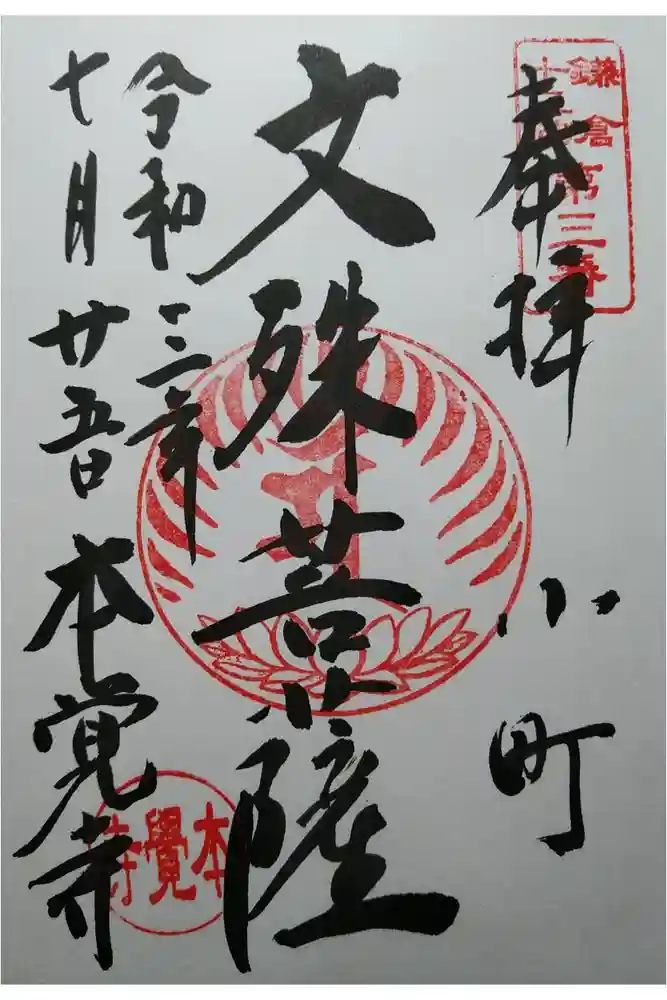 奉拝
小町
鎌倉
十三
第三番
文殊菩薩
令和三年
七月廿五日
本覚寺
本覺寺